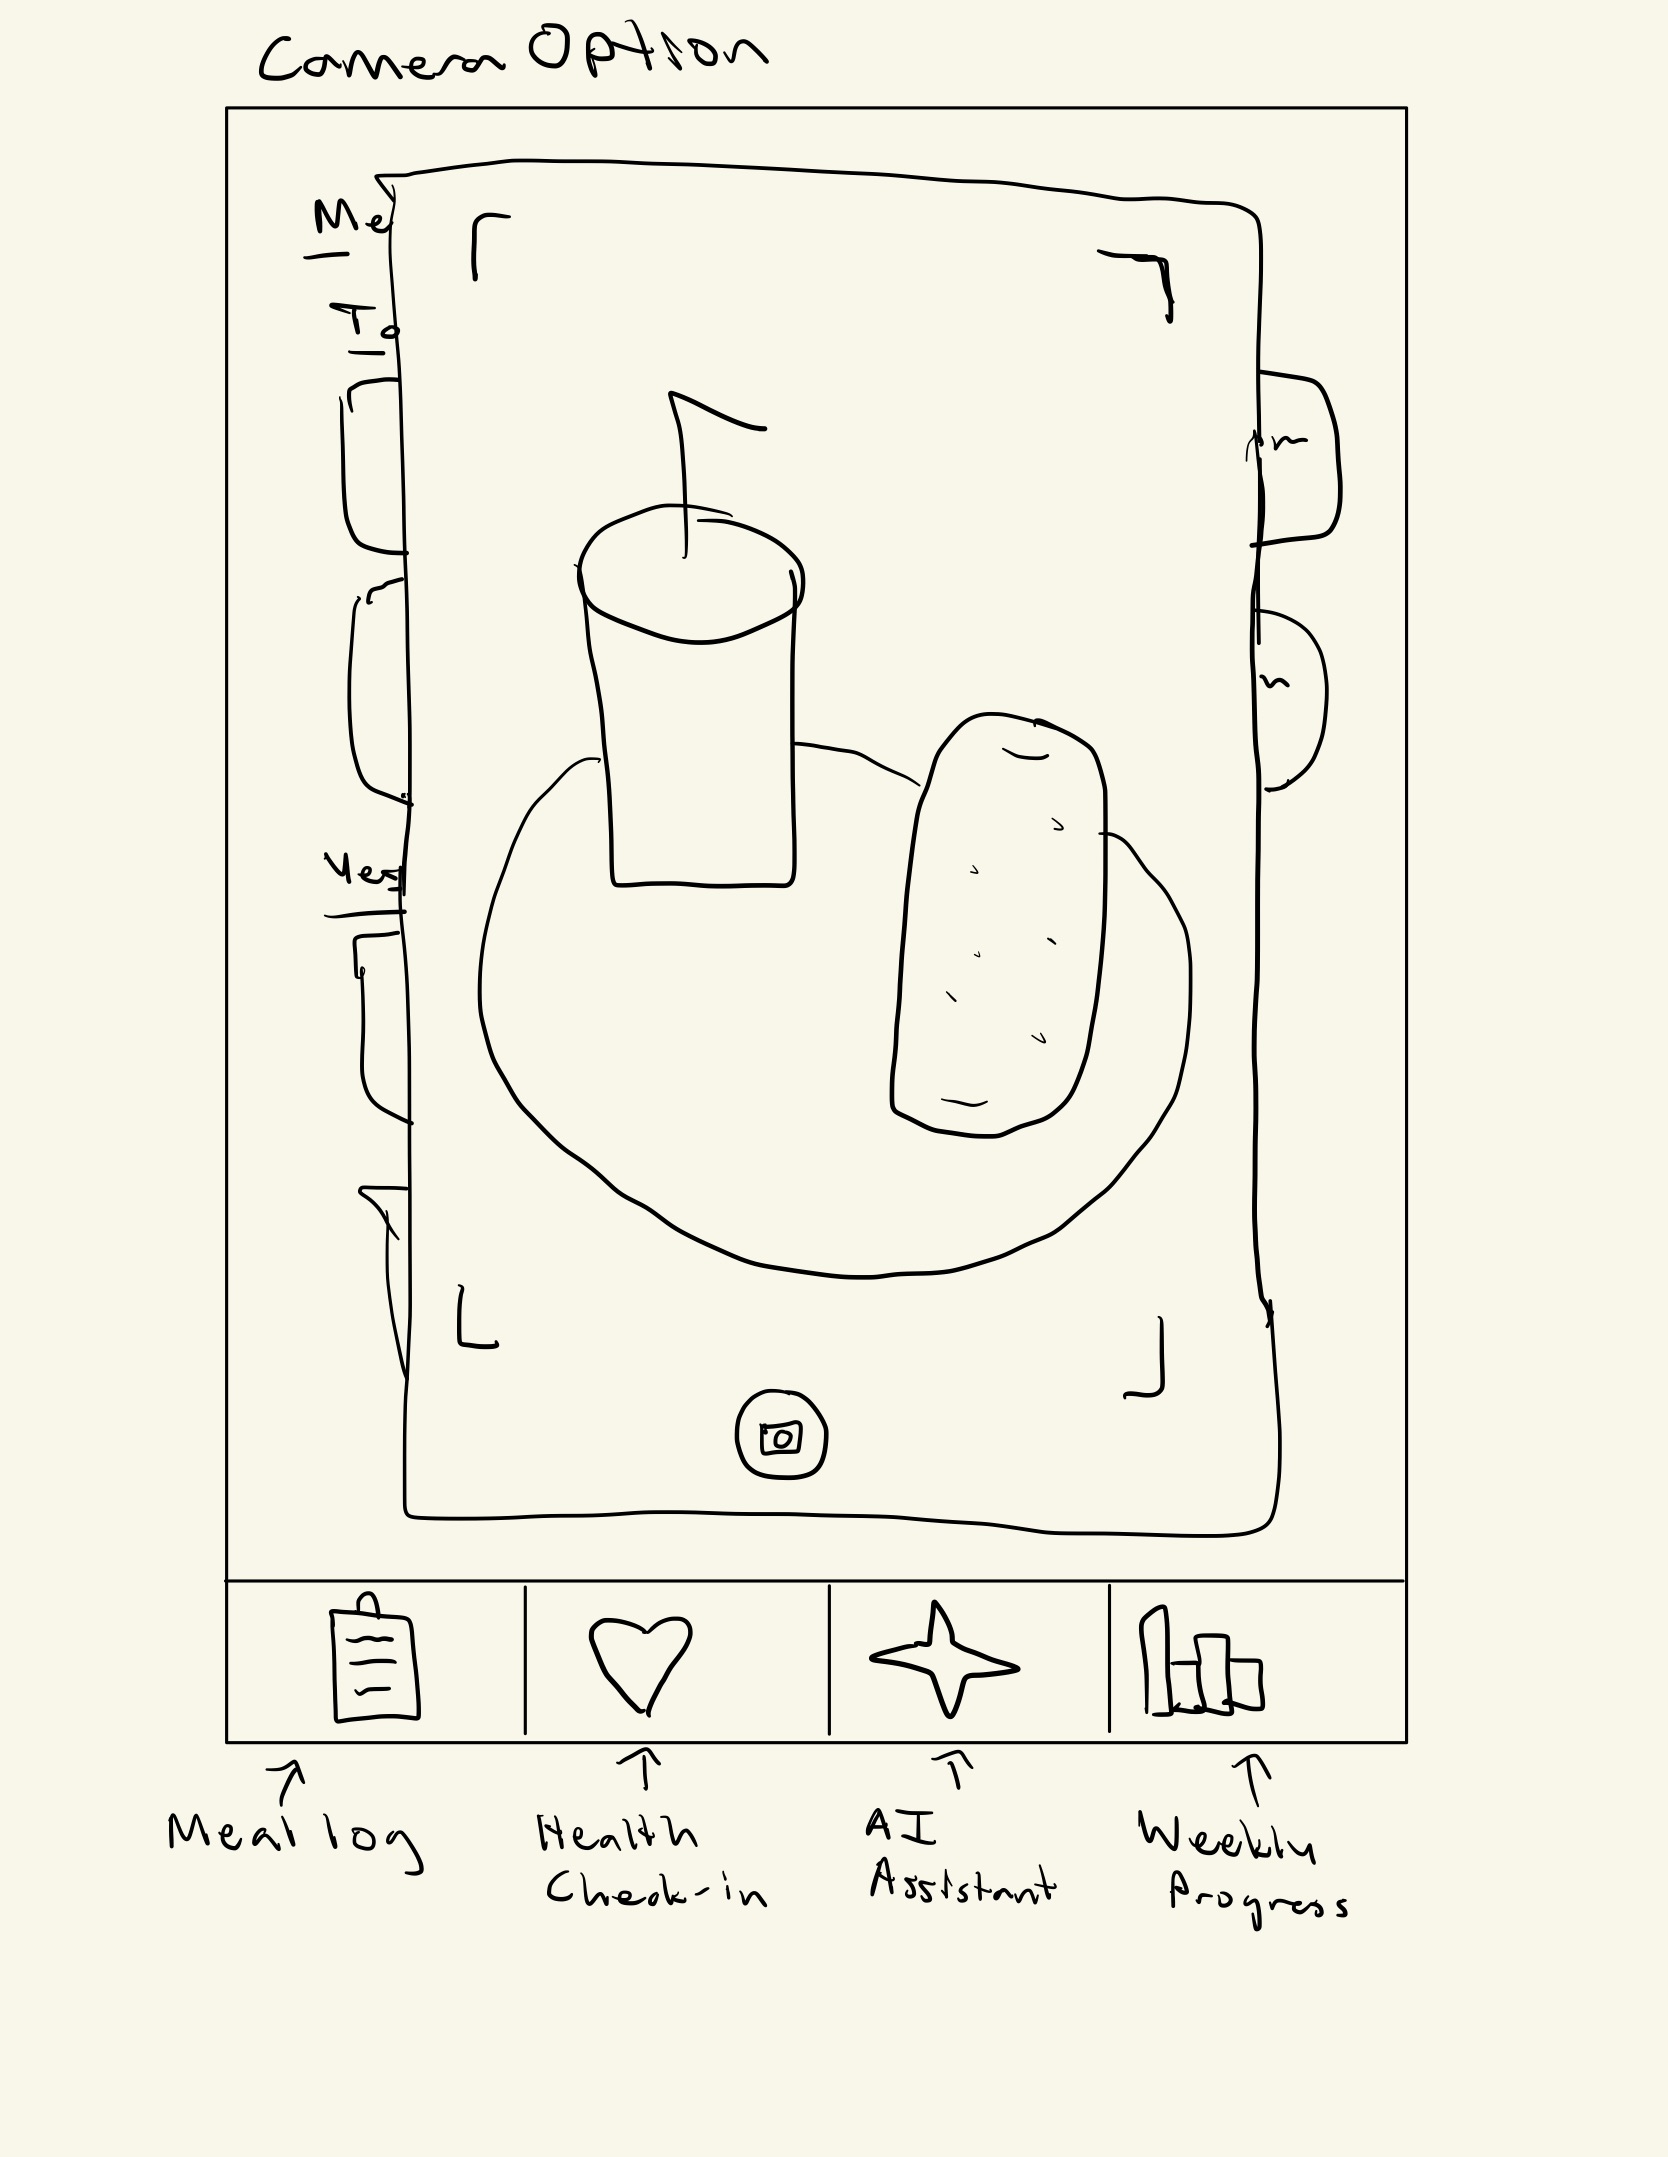 Camera Option
Me
To
Yes
Meal log
Health
Check-in
AI
Assistant
Weekly
Progress